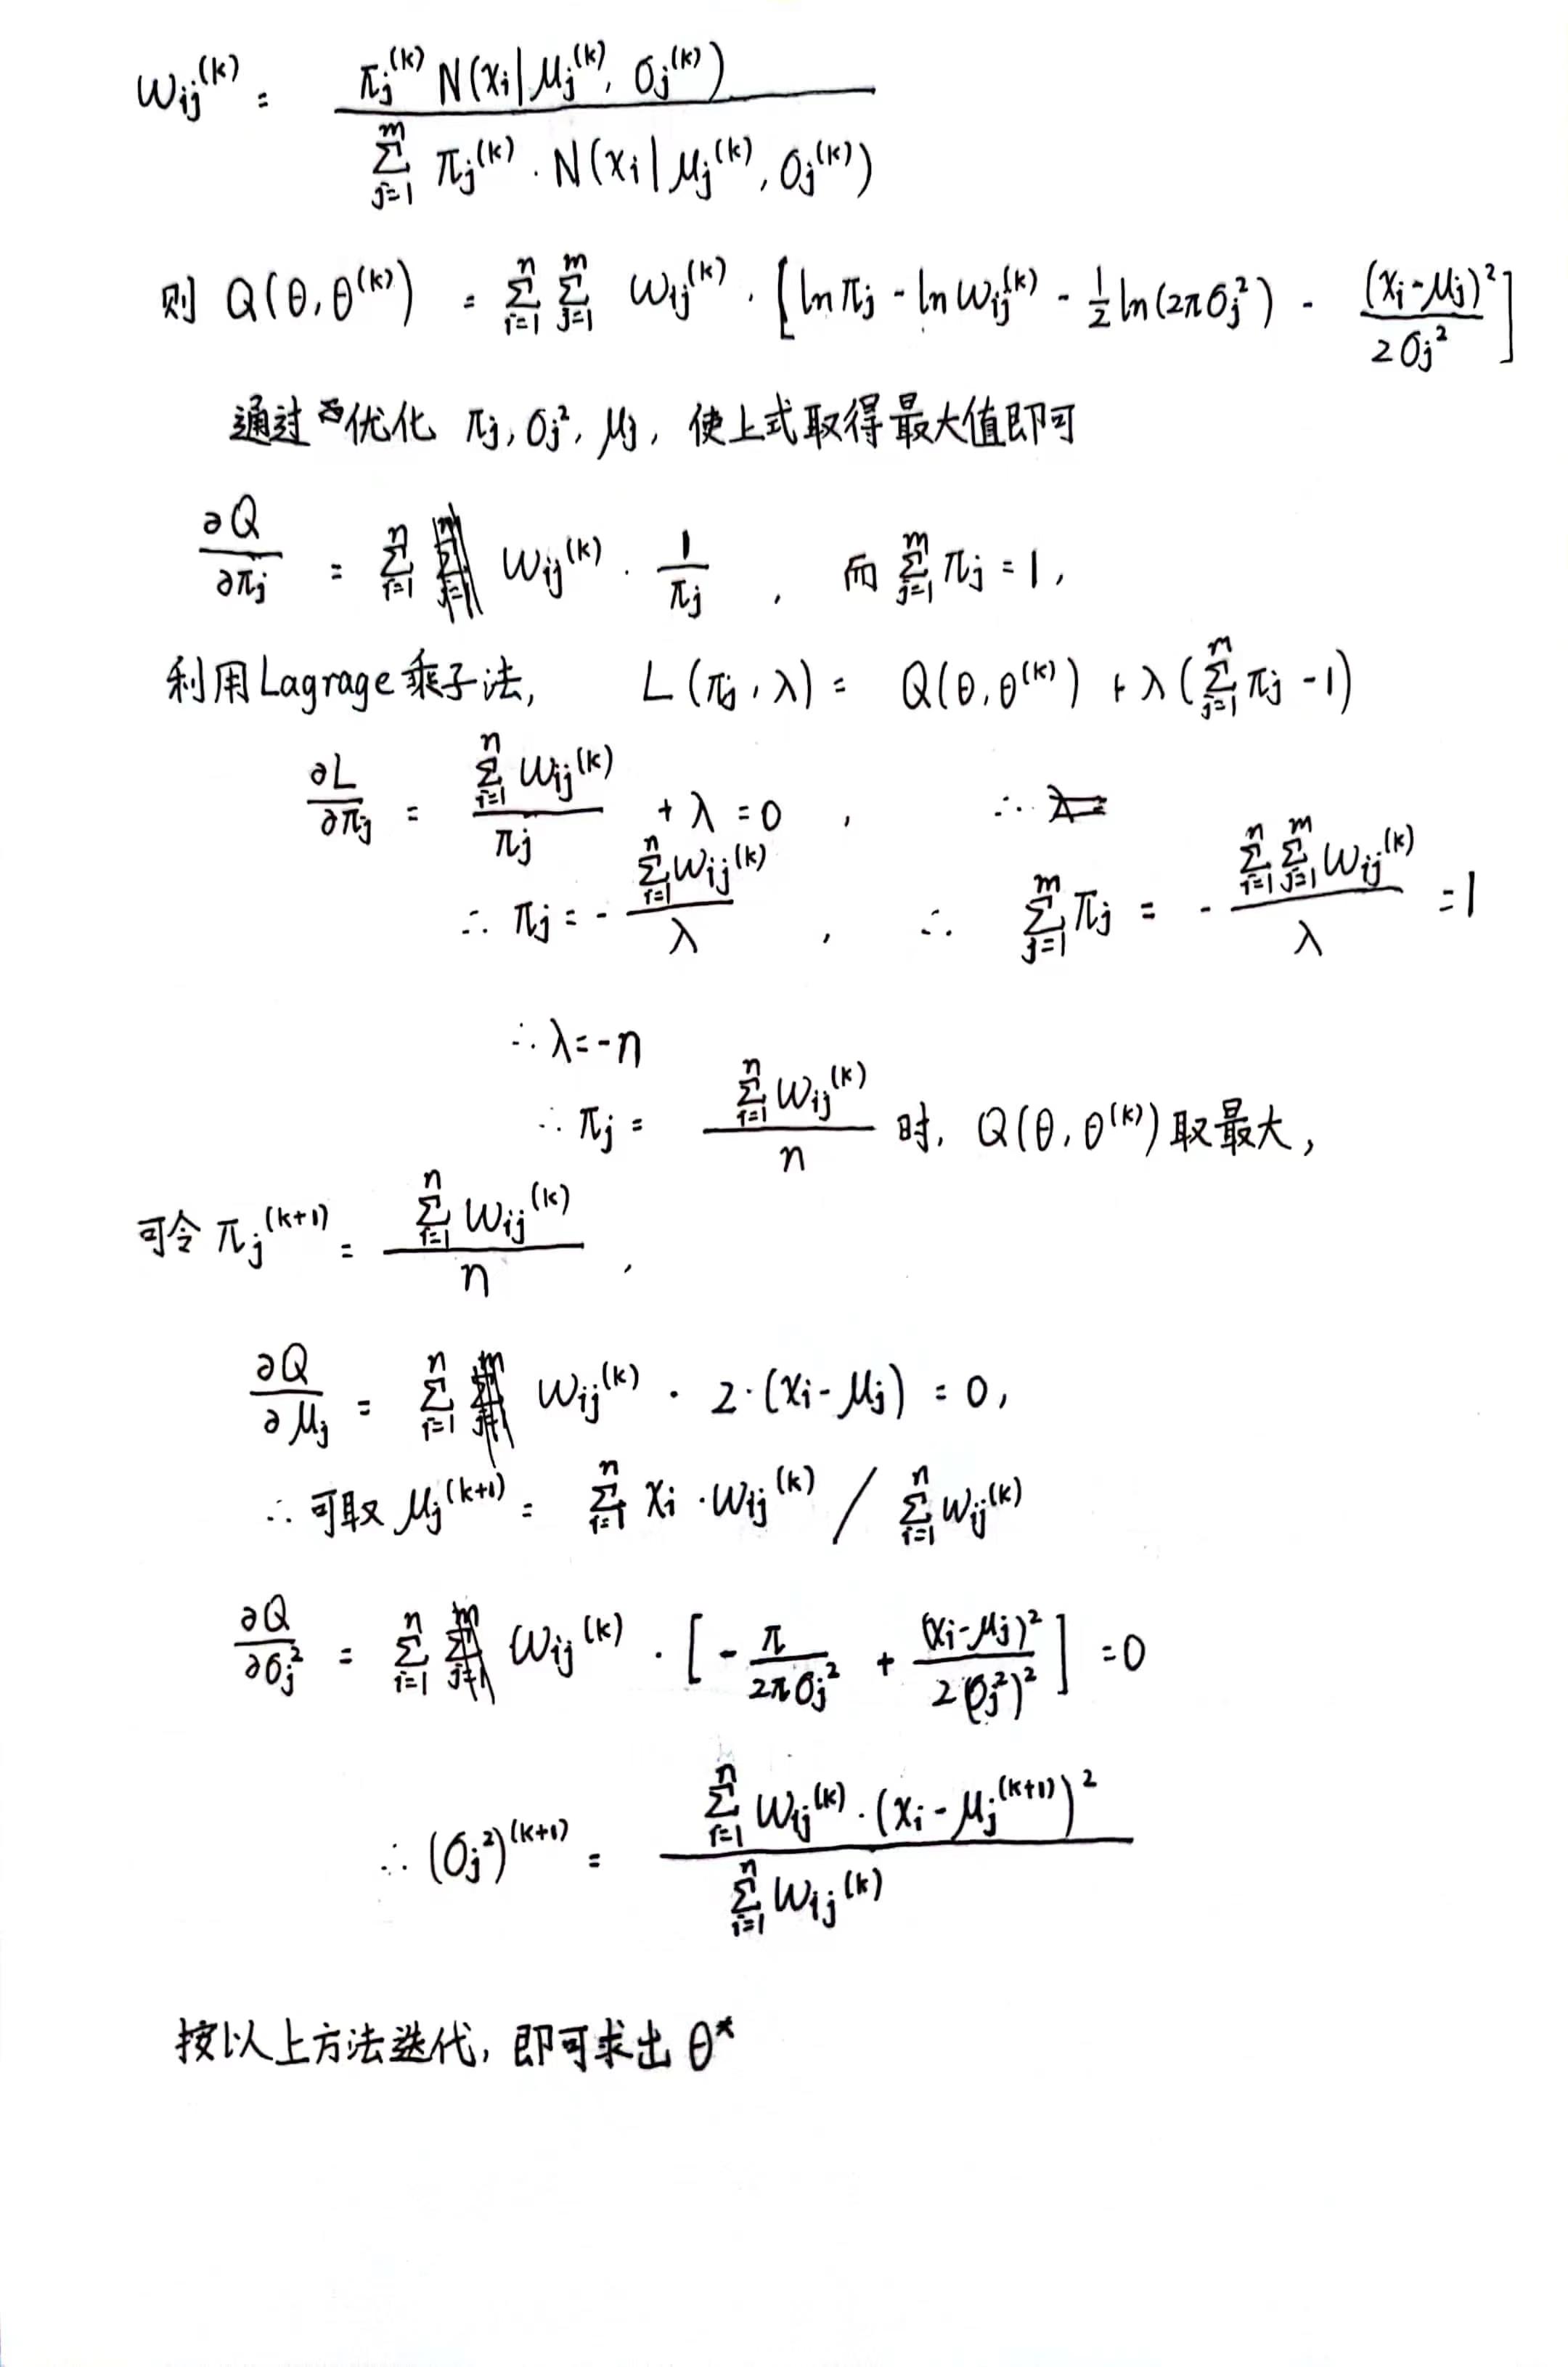 $w_{ij}^{(k)} = \frac{\pi_j^{(k)} N(x_i | \mu_j^{(k)}, \sigma_j^{(k)})}{\sum_{j=1}^{m} \pi_j^{(k)} \cdot N(x_i | \mu_j^{(k)}, \sigma_j^{(k)})}$
则 $Q(\theta, \theta^{(k)}) = \sum_{i=1}^{n} \sum_{j=1}^{m} w_{ij}^{(k)} \cdot \left[ \ln \pi_j - \ln w_{ij}^{(k)} - \frac{1}{2} \ln(2\pi\sigma_j^2) - \frac{(x_i - \mu_j)^2}{2\sigma_j^2} \right]$
通过优化 $\pi_j, \sigma_j^2, \mu_j$, 使上式取得最大值即可
$\frac{\partial Q}{\partial \pi_j} = \sum_{i=1}^{n} w_{ij}^{(k)} \cdot \frac{1}{\pi_j}$, 而 $\sum_{j=1}^{m} \pi_j = 1$,
利用Lagrage乘子法, $L(\pi_j, \lambda) = Q(\theta, \theta^{(k)}) + \lambda (\sum_{j=1}^{m} \pi_j - 1)$
$\frac{\partial L}{\partial \pi_j} = \frac{\sum_{i=1}^{n} w_{ij}^{(k)}}{\pi_j} + \lambda = 0$, ∴
∴ $\pi_j = - \frac{\sum_{i=1}^{n} w_{ij}^{(k)}}{\lambda}$, ∴ $\sum_{j=1}^{m} \pi_j = - \frac{\sum_{i=1}^{n} \sum_{j=1}^{m} w_{ij}^{(k)}}{\lambda} = 1$
∴ $\lambda = -n$
∴ $\pi_j = \frac{\sum_{i=1}^{n} w_{ij}^{(k)}}{n}$ 时, $Q(\theta, \theta^{(k)})$ 取最大,
可令 $\pi_j^{(k+1)} = \frac{\sum_{i=1}^{n} w_{ij}^{(k)}}{n}$,
$\frac{\partial Q}{\partial \mu_j} = \sum_{i=1}^{n} w_{ij}^{(k)} \cdot 2 \cdot (x_i - \mu_j) = 0$,
∴ 可取 $\mu_j^{(k+1)} = \sum_{i=1}^{n} x_i \cdot w_{ij}^{(k)} / \sum_{i=1}^{n} w_{ij}^{(k)}$
$\frac{\partial Q}{\partial \sigma_j^2} = \sum_{i=1}^{n} w_{ij}^{(k)} \cdot \left[ - \frac{\pi}{2\pi\sigma_j^2} + \frac{(x_i - \mu_j)^2}{2(\sigma_j^2)^2} \right] = 0$
∴ $(\sigma_j^2)^{(k+1)} = \frac{\sum_{i=1}^{n} w_{ij}^{(k)} \cdot (x_i - \mu_j^{(k+1)})^2}{\sum_{i=1}^{n} w_{ij}^{(k)}}$
按以上方法迭代, 即可求出 $\theta^*$